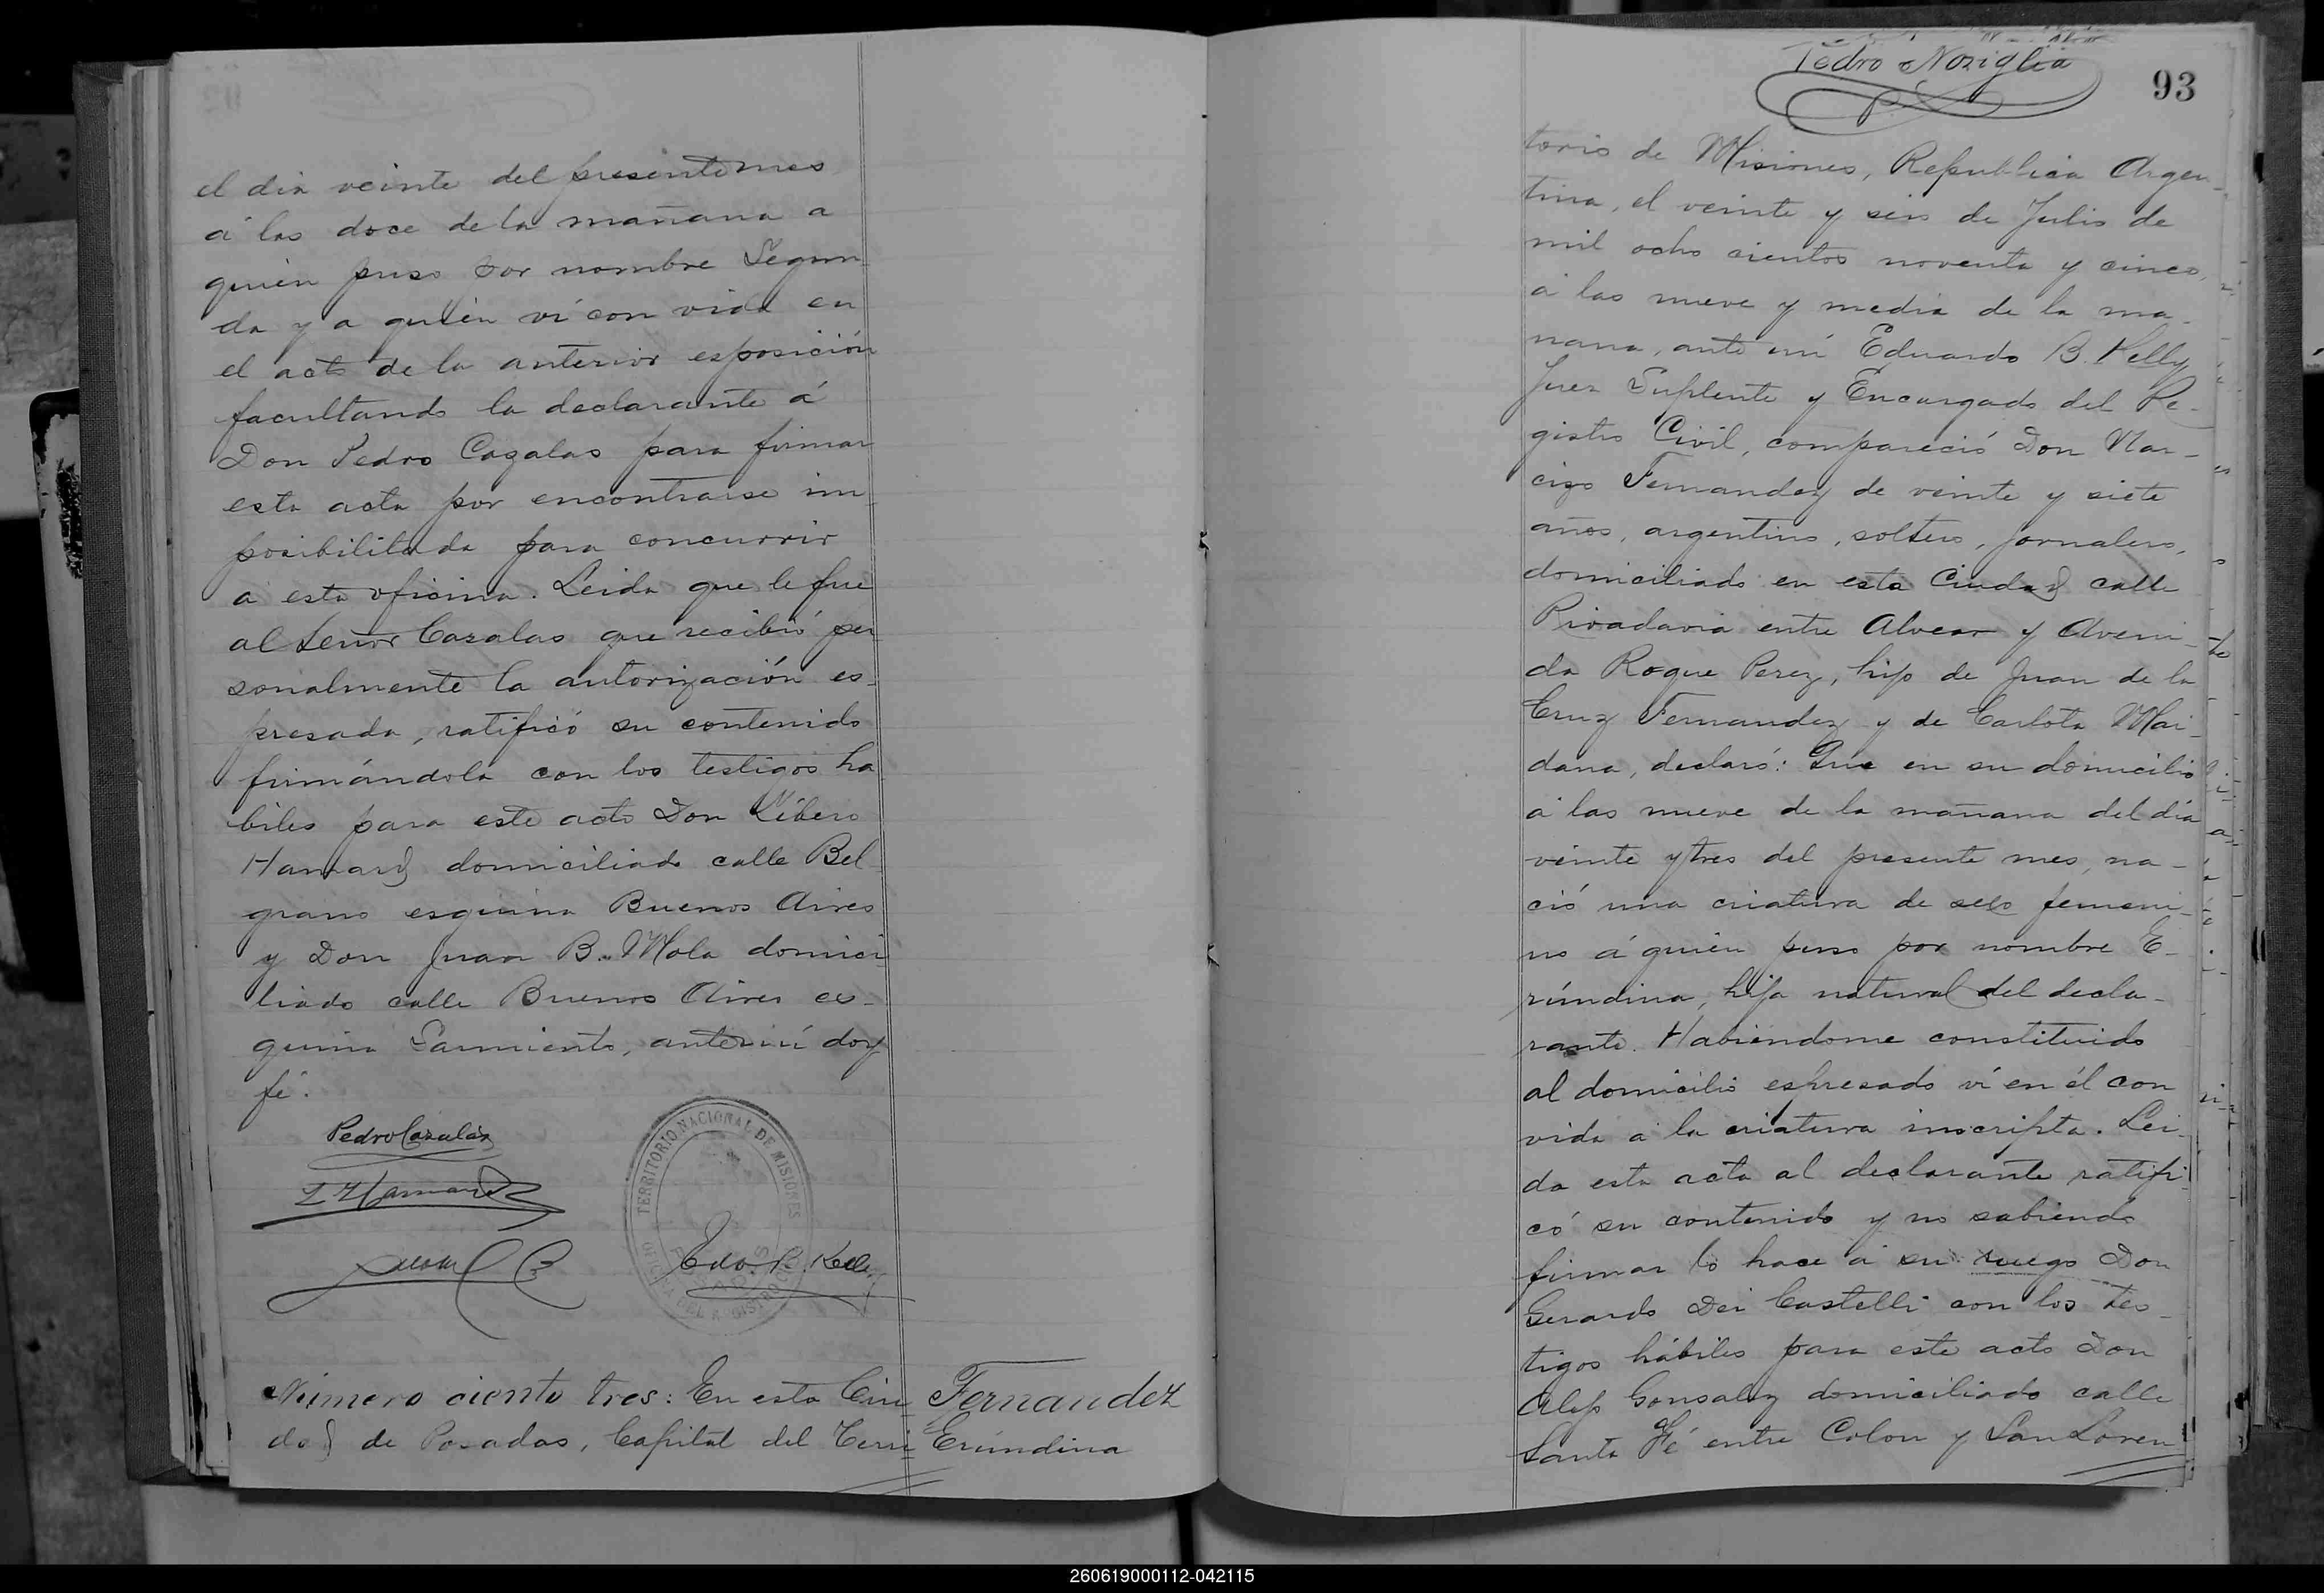 el dia veinte del presente mes
á las doce de la mañana a
quien puso por nombre Segun
da y a quién ví con vida en
el acto de la anterior esposición
facultando la declarante á
Don Pedro Cazalas para firmar
esta acta por encontrarse im
posibilitada para concurrir
a esta oficina. Leida que le fue
al Señor Cazalas que recibió per
sonalmente la autorización es-
presada, ratificó su contenido
firmándola con los testigos ha
biles para este acto Don Líbero
Hamard domiciliado calle Bel
grano esquina Buenos Aires
y Don Juan B. Mola domici
liado calle Buenos Aires es-
quina Sarmiento, ante mí doy
fé.
Pedro Cazalas
L Hamard
Edo B. Kelly
TERRITORIO NACIONAL DE MISIONES
OFICINA DEL REGISTRO CIVIL
POSADAS
Número ciento tres: En esta Ciu
dad de Posadas, Capital del Terri
Fernandez
Erúndina
Pedro Noziglia
93
torio de Misiones, Republica Argen-
tina, el veinte y seis de Julio de
mil ocho cientos noventa y cinco,
á las nueve y media de la ma-
nana, ante mí Eduardo B. Kelly
Juez Suplente y Encargado del Re-
gistro Civil, compareció Don Nar-
cizo Fernandez de veinte y siete
años, argentino, soltero, jornalero,
domiciliado en esta Ciudad calle
Rivadavia entre Alvear y Aveni-
da Roque Perez, hijo de Juan de la
Cruz Fernandez y de Carlota Mai-
dana, declaró: Que en su domicilio
á las nueve de la mañana del día
veinte y tres del presente mes, na-
ció una criatura de sexo femeni-
no á quién puso por nombre E-
rúndina, hija natural del decla-
rante. Habiéndome constituido
al domicilio espresado ví en él con
vida a la criatura inscripta. Lei-
da esta acta al declarante ratifi-
có su contenido y no sabiendo
firmar lo hace á su ruego Don
Gerardo Dei Castelli con los tes-
tigos hábiles para este acto Don
Alejo Gonsalez domiciliado calle
Santa Fé entre Colon y San Loren